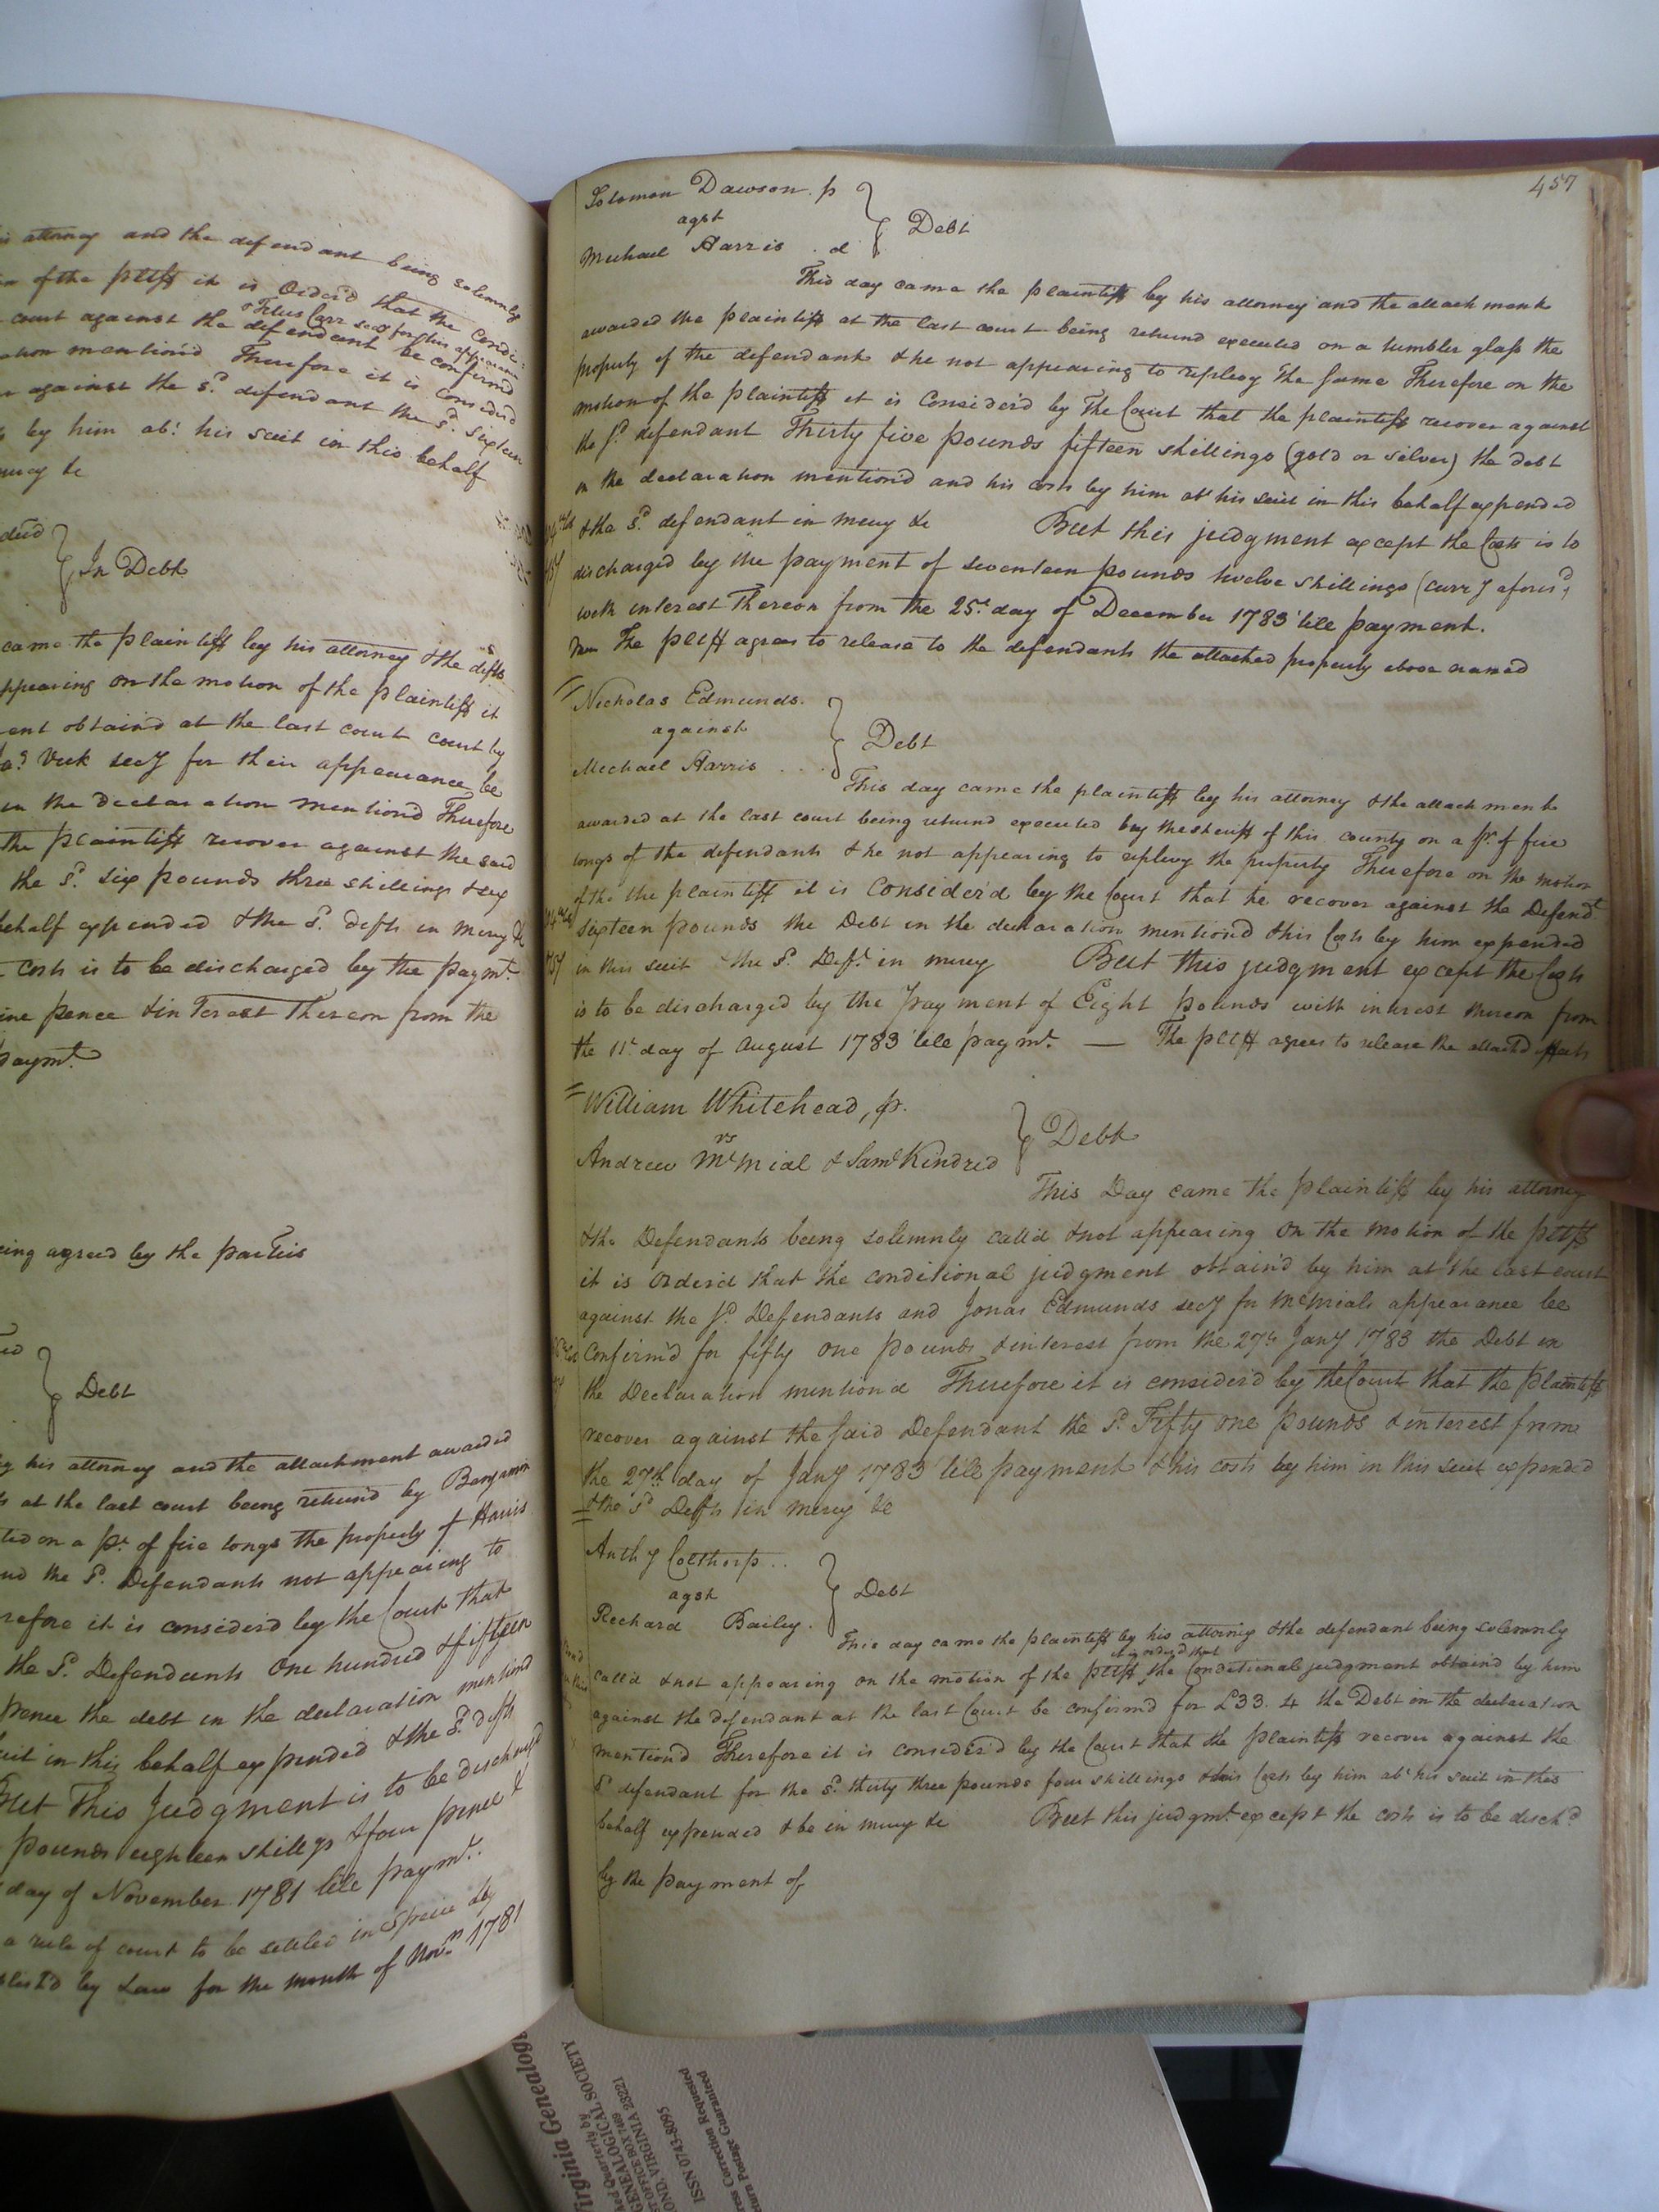 attorney and the defendant being solemnly
of the pltff it is Order'd that the Condi-
& Titus Carr secy for his appearance
court against the defendant be confirmed
mention'd Therefore it is Consider'd
against the sd. defendant the sd. Sixteen
by him abt. his suit in this behalf
mercy &c
In Debt
came the plaintiff by his attorney & the defts
appearing on the motion of the plaintiff it
obtain'd at the last court court by
Vick secy for their appearance be
in the declaration mention'd Therefore
the plaintiff recover against the said
the sd. six pounds three shillings & six
behalf expended & the sd. defts in mercy &c
costs is to be discharged by the paymt.
pence & interest thereon from the
paymt.
being agreed by the parties
Debt
by his attorney and the attachment awarded
at the last court being return'd by Benjamin
on a pr. of fire tongs the property of Harris
and the sd. Defendants not appearing to
Therefore it is consider'd by the Court that
the sd. Defendants One hundred & fifteen
pence the debt in the declaration mention'd
suit in this behalf expended & the sd defts
But This Judgment is to be discharg'd
pounds eighteen shillgs & four pence &
day of November 1781 till paymt.
a rule of court to be settled in Specie
by Law for the month of Novr. 1781
457
Solomon Dawson p
agst
Michael Harris . d
Debt
This day came the plaintiff by his attorney and the attachment
awarded the plaintiff at the last court being returnd executed on a tumbler glass the
property of the defendants & he not appearing to replevy the same Therefore on the
motion of the plaintiff it is Consider'd by the Court that the plaintiff recover against
the sd defendant Thirty five pounds fifteen shillings (gold or silver) the debt
in the declaration mention'd and his costs by him abt his suit in this behalf expended
& the sd defendant in mercy &c But this judgment except the Costs is to
discharged by the payment of seventeen pounds twelve shillings (curry aforesd,
with interest thereon from the 25t day of December 1783 till payment.
The pltff agrees to release to the defendants the attached property above named
Nicholas Edmunds.
against
Michael Harris ...
Debt
This day came the plaintiff by his attorney & the attachment
awarded at the last court being returnd executed by the sheriff of this county on a pr. of fire
tongs of the defendants & he not appearing to replevy the property Therefore on the motion
of the the plaintiff it is Consider'd by the Court that he recover against the Defendt.
sixteen pounds the Debt in the declaration mention'd & his Costs by him expended
in this suit & the sd. Deft. in mercy But this judgment except the Costs
is to be discharged by the payment of Eight pounds with interest thereon from
the 11t. day of August 1783 till paymt. — The pltff agrees to release the attach'd effects
William Whitehead, p.
vs
Andrew McMial & Saml Kindred
Debt
This Day came the plaintiff by his attorney
& the Defendants being solemnly call'd & not appearing On the motion of the pltff
it is Order'd that the conditional judgment obtain'd by him at the last court
against the sd. Defendants and Jonas Edmunds secy for McMials appearance be
Confirm'd for fifty one pounds & interest from the 27th Jany 1783 the Debt in
the Declaration mention'd Therefore it is consider'd by the Court that the plaintiff
recover against the said Defendant the sd. Fifty one pounds & interest from
the 27th. day of Jany 1783 till payment & his costs by him in this suit expended
& the sd Defts in mercy &c
Anthy Colthorp ..
agst
Richard Bailey.
Debt
This day came the plaintiff by his attorney & the defendant being solemnly
it is order'd that
call'd & not appearing on the motion of the pltff, the Conditional judgment obtain'd by him
against the defendant at the last Court be confirm'd for £33. 4 the Debt in the declaration
mention'd Therefore it is consider'd by the Court that the plaintiff recover against the
sd defendant for the sd. thirty three pounds four shillings & his Costs by him abt his suit in this
behalf expended & be in mercy &c But this judgmt. except the costs is to be dischd
by the payment of
Virginia Genealog
Quarterly by
GENEALOGICAL SOCIETY
OFFICE BOX 7469
MOND, VIRGINIA 23221
ISSN 0743-8095
ress Correction Requested
turn Postage Guaranteed